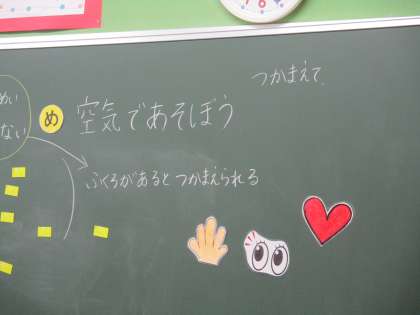 つかまえて、
めい
ない
め 空気であそぼう
ふくろがあるとつかまえられる